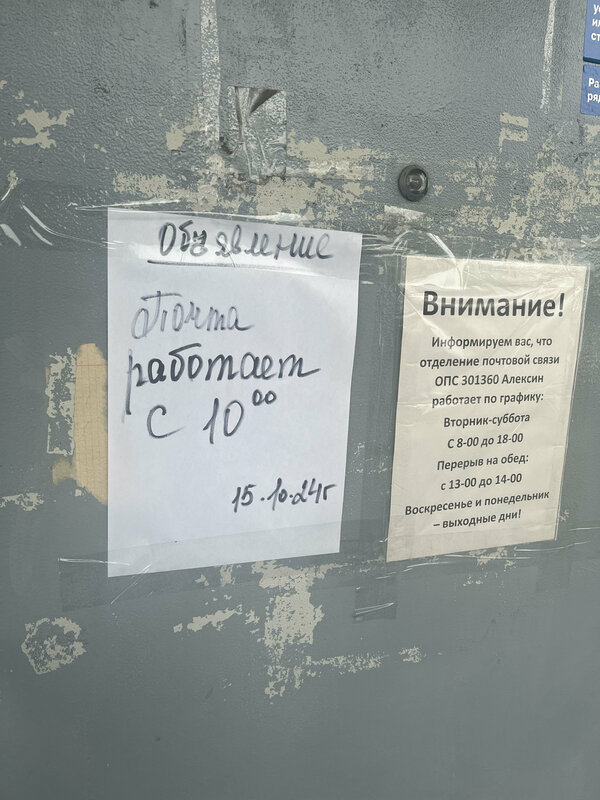 Объявление
Почта
работает
с 10 00
15.10.24г
Внимание!
Информируем вас, что
отделение почтовой связи
ОПС 301360 Алексин
работает по графику:
Вторник-суббота
С 8-00 до 18-00
Перерыв на обед:
с 13-00 до 14-00
Воскресенье и понедельник
– выходные дни!